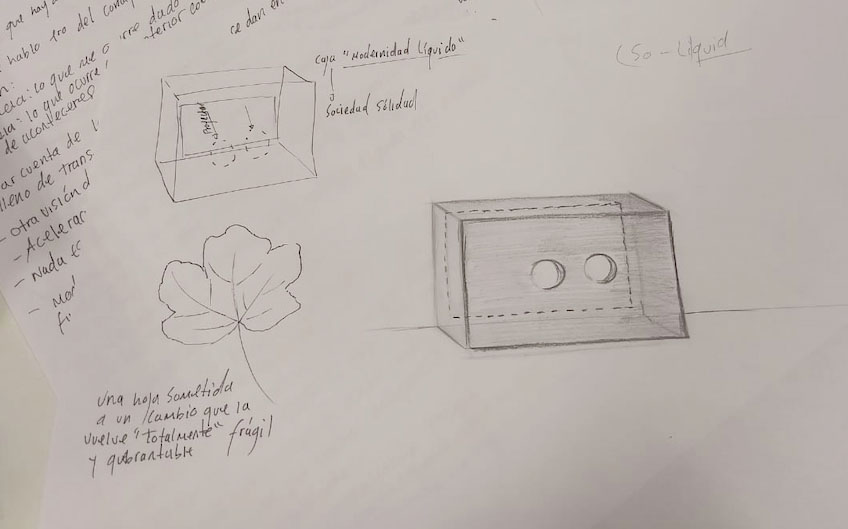 que hay
hablo ero del
ce dan en
lo que me
lo que ocurre
de aconteceres
ar cuenta de l
lleno de trans
- otra visión d
- Acelerar
- Nada
caja "Modernidad líquido"
Sociedad sólidad
(So-Liquid
una hoja sometida
a un cambio que la
vuelve "totalmente" frágil
y qubrantable